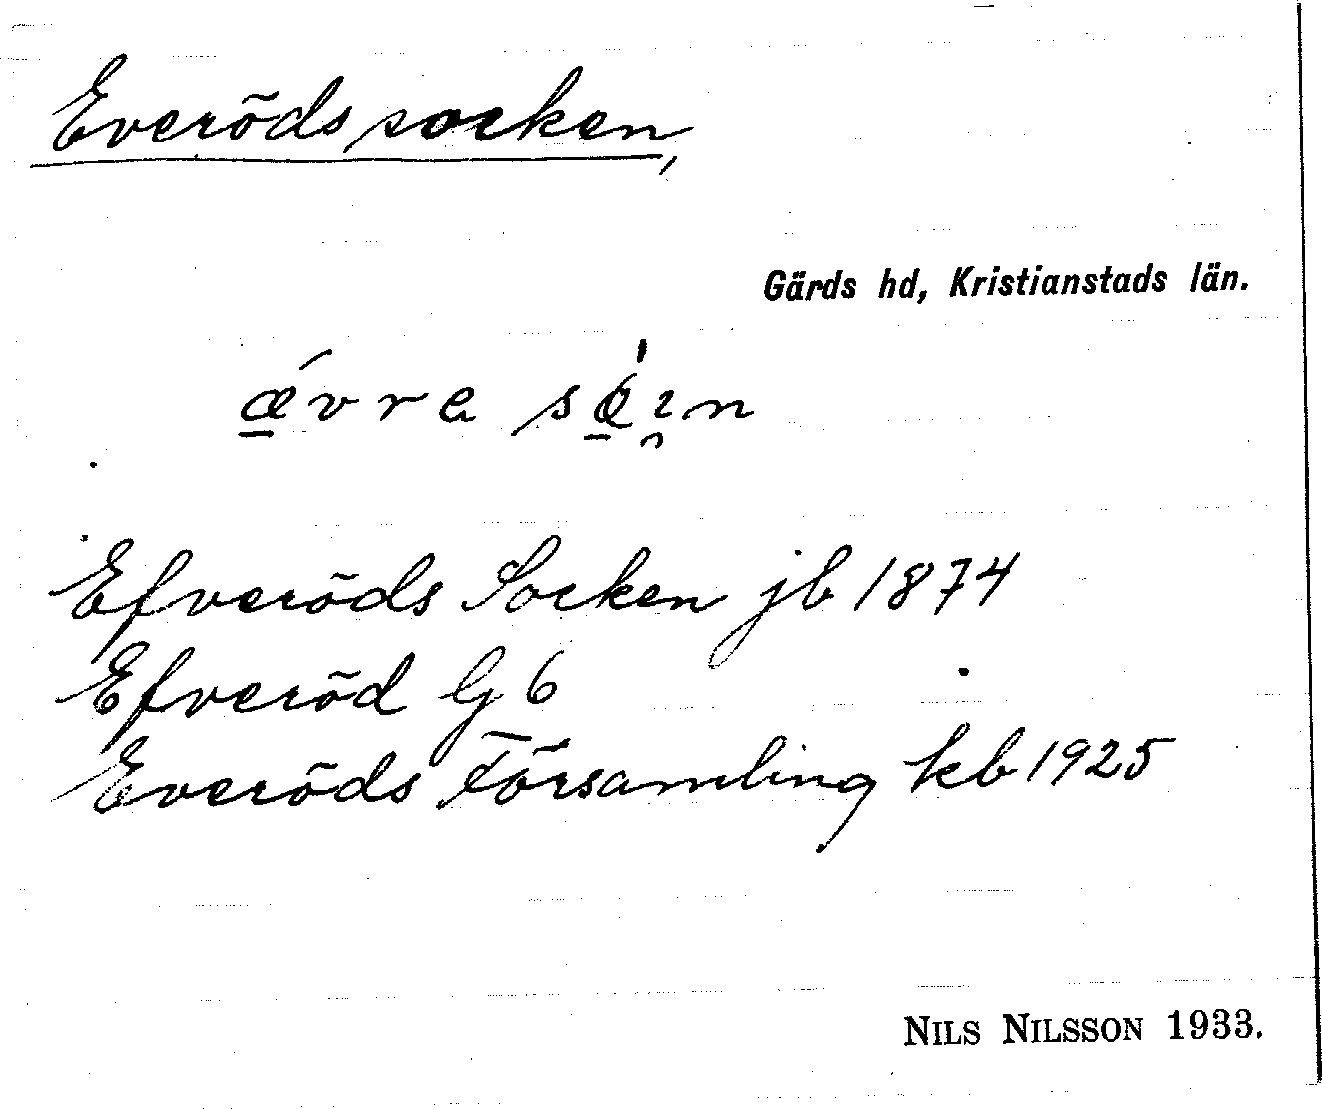 Everöds socken,
Gärds hd, Kristianstads län.
Efveröds Socken jb 1874
Efveröd G 6
Everöds Församling kb 1925
NILS NILSSON 1933.